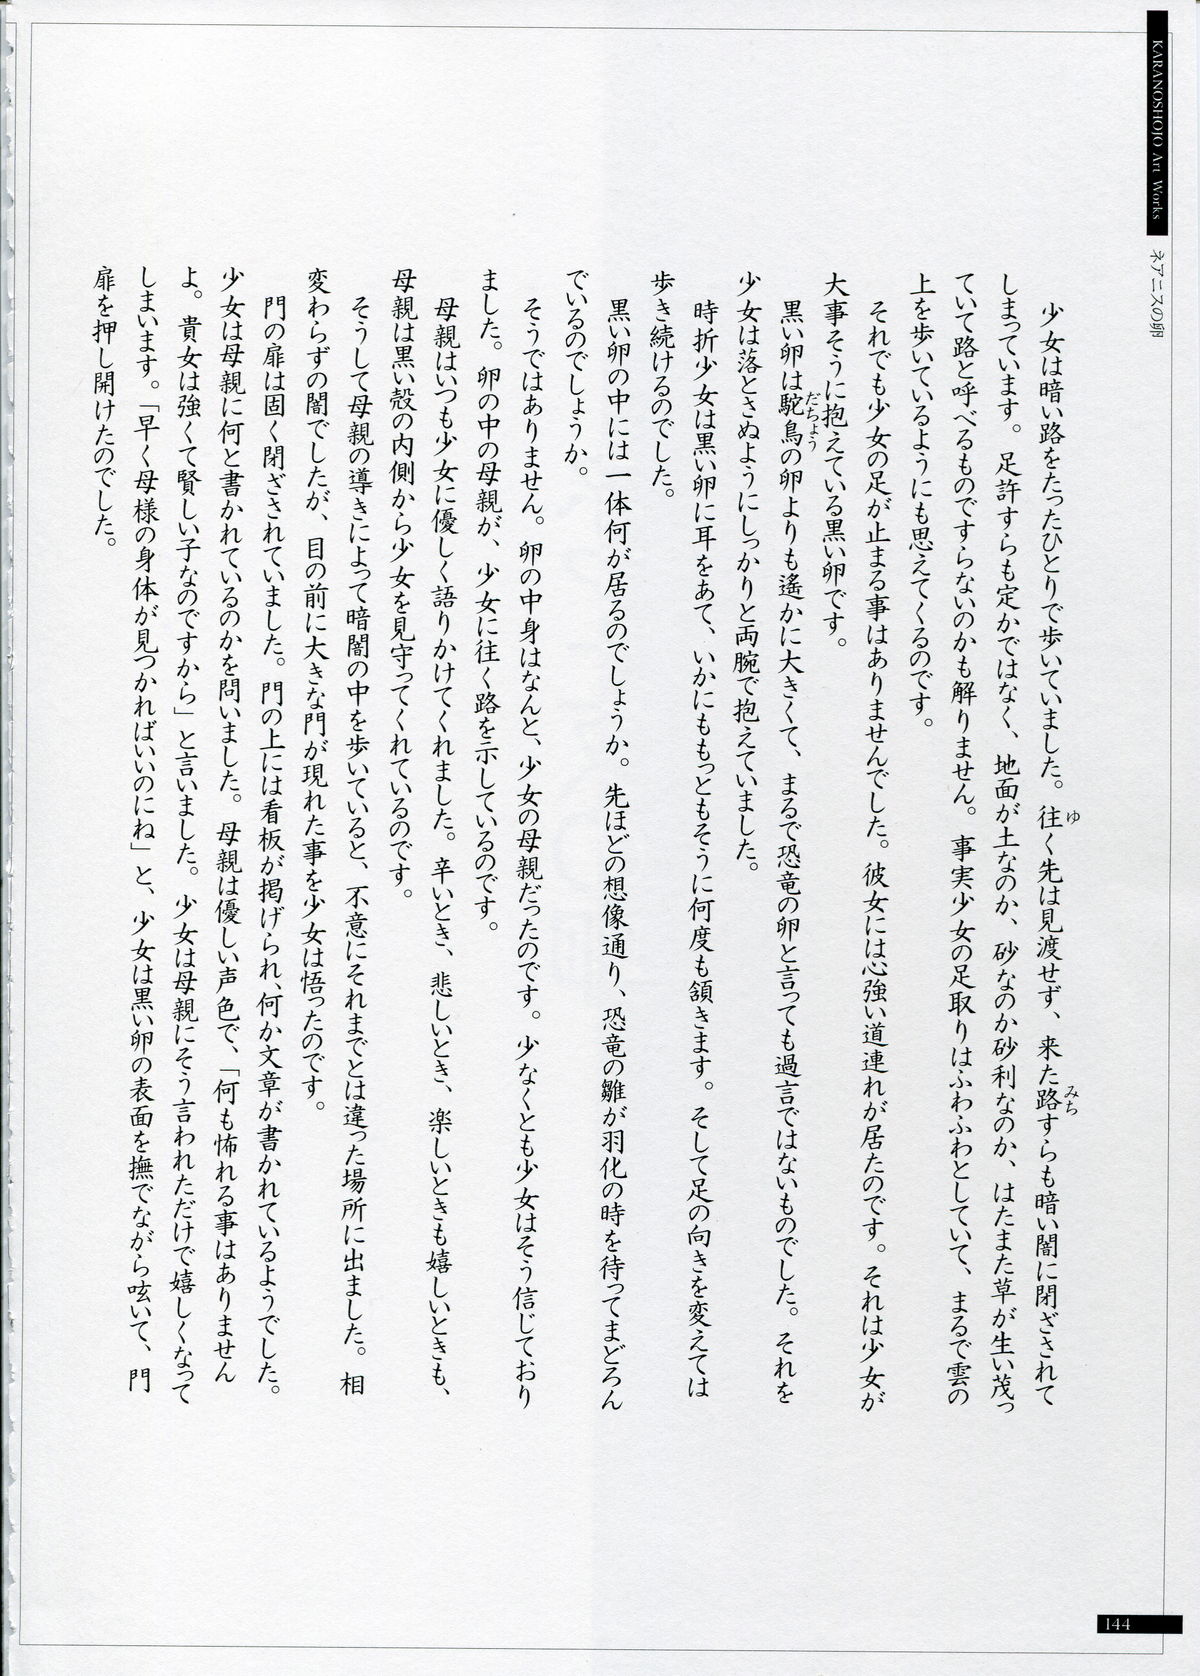 KARANOSHOJO Art Works
ネアニスの卵
少女は暗い路をたったひとりで歩いていました。往く先は見渡せず、来た路すらも暗い闇に閉ざされて
しまっています。足許すらも定かではなく、地面が土なのか、砂なのか砂利なのか、はたまた草が生い茂っ
ていて路と呼べるものですらないのかも解りません。事実少女の足取りはふわふわとしていて、まるで雲の
上を歩いているようにも思えてくるのです。
それでも少女の足が止まる事はありませんでした。彼女には心強い道連れが居たのです。それは少女が
大事そうに抱えている黒い卵です。
黒い卵は駝鳥の卵よりも遙かに大きくて、まるで恐竜の卵と言っても過言ではないものでした。それを
少女は落とさぬようにしっかりと両腕で抱えていました。
時折少女は黒い卵に耳をあて、いかにももっともそうに何度も頷きます。そして足の向きを変えては
歩き続けるのでした。
黒い卵の中には一体何が居るのでしょうか。先ほどの想像通り、恐竜の雛が羽化の時を待ってまどろん
でいるのでしょうか。
そうではありません。卵の中身はなんと、少女の母親だったのです。少なくとも少女はそう信じており
ました。卵の中の母親が、少女に往く路を示しているのです。
母親はいつも少女に優しく語りかけてくれました。辛いとき、悲しいとき、楽しいときも嬉しいときも、
母親は黒い殻の内側から少女を見守ってくれているのです。
そうして母親の導きによって暗闇の中を歩いていると、不意にそれまでとは違った場所に出ました。相
変わらずの闇でしたが、目の前に大きな門が現れた事を少女は悟ったのです。
門の扉は固く閉ざされていました。門の上には看板が掲げられ、何か文章が書かれているようでした。
少女は母親に何と書かれているのかを問いました。母親は優しい声色で、「何も怖れる事はありません
よ。貴女は強くて賢しい子なのですから」と言いました。少女は母親にそう言われただけで嬉しくなって
しまいます。「早く母様の身体が見つかればいいのにね」と、少女は黒い卵の表面を撫でながら呟いて、門
扉を押し開けたのでした。
ゆ
みち
だちょう
144